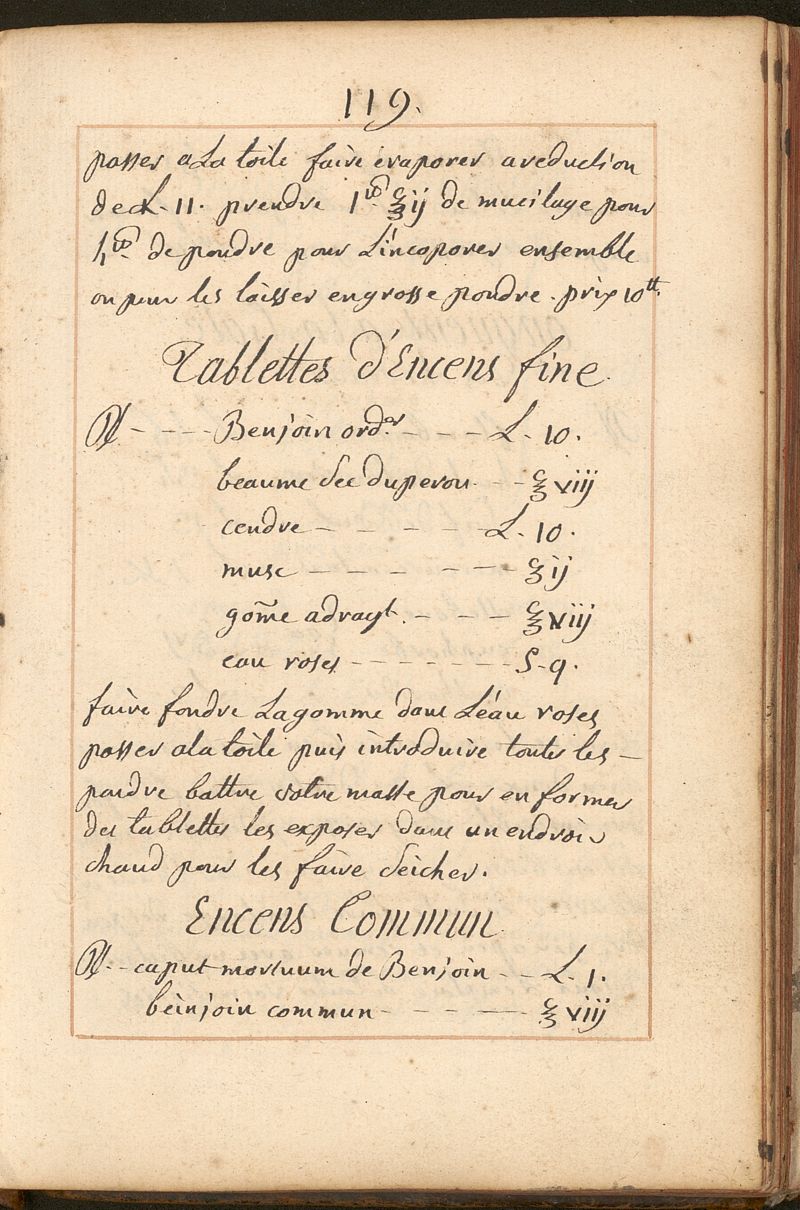 119.
passer a La toile faire évaporer a reduction
de L. 11. prendre 1 lb. ℥ij de mucilage pour
1 lb. de poudre pour L'incoporer ensemble
on peut les laisser en grosse poudre. prix 10 tt.
Tablettes d'Encens fine
℞ - - - - Benjoin ord.er - - - - L. 10.
beaume sec du perou - - - ℥viij
cendre - - - - - - L. 10.
musc - - - - - - ℥ij
gom̄e adragt. - - - - ℥viij
eau roses - - - - - - - S. 9.
faire fondre La gomme dans L'éau roses
passer a la toile puis introduire toutes les -
poudre battre votre masse pour en former
des tablettes les exposer dans un endroit
chaud pour les faire séicher.
Encens Commun
℞. - - caput mortuum de Benjoin - - L. 1.
beinjoin commun - - - - - ℥viij